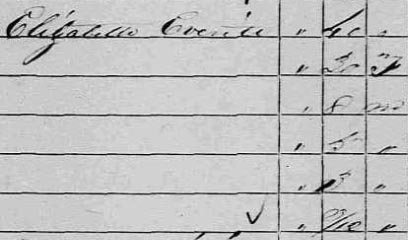 Elizabeth Everitt " 40 "
" 30 F
" 8 m
" 5 "
" 3 "
" 2/12 "